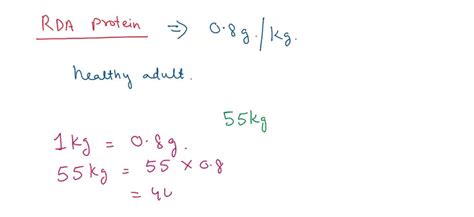 RDA protein ⇒ 0.8g./kg.
healthy adult.
55kg
1kg = 0.8g.
55kg = 55 × 0.8
= 44